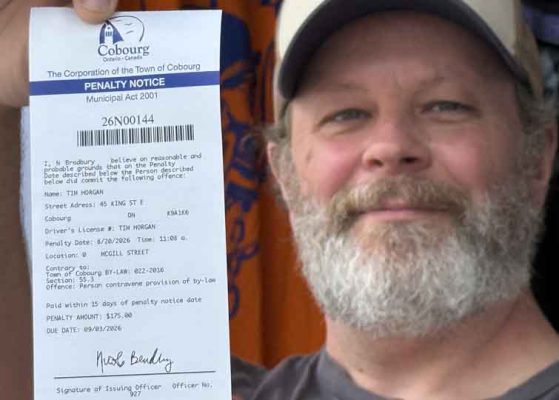 Cobourg
Ontario - Canada
The Corporation of the Town of Cobourg
PENALTY NOTICE
Municipal Act 2001
26N00144
I, N Bradbury believe on reasonable and
probable grounds that on the Penalty
Date described below the Person described
below did commit the following offence:
Name: TIM HORGAN
Street Address: 45 KING ST E
Cobourg ON K9A1K6
Driver's License #: TIM HORGAN
Penalty Date: 8/20/2026 Time: 11:08 a.
Location: 0 MCGILL STREET
Contrary to:
Town of Cobourg BY-LAW: 022-2016
Section: 55.3
Offence: Person contravene provision of by-law
Paid within 15 days of penalty notice date
PENALTY AMOUNT: $175.00
DUE DATE: 09/03/2026
Signature of Issuing Officer Officer No.
927